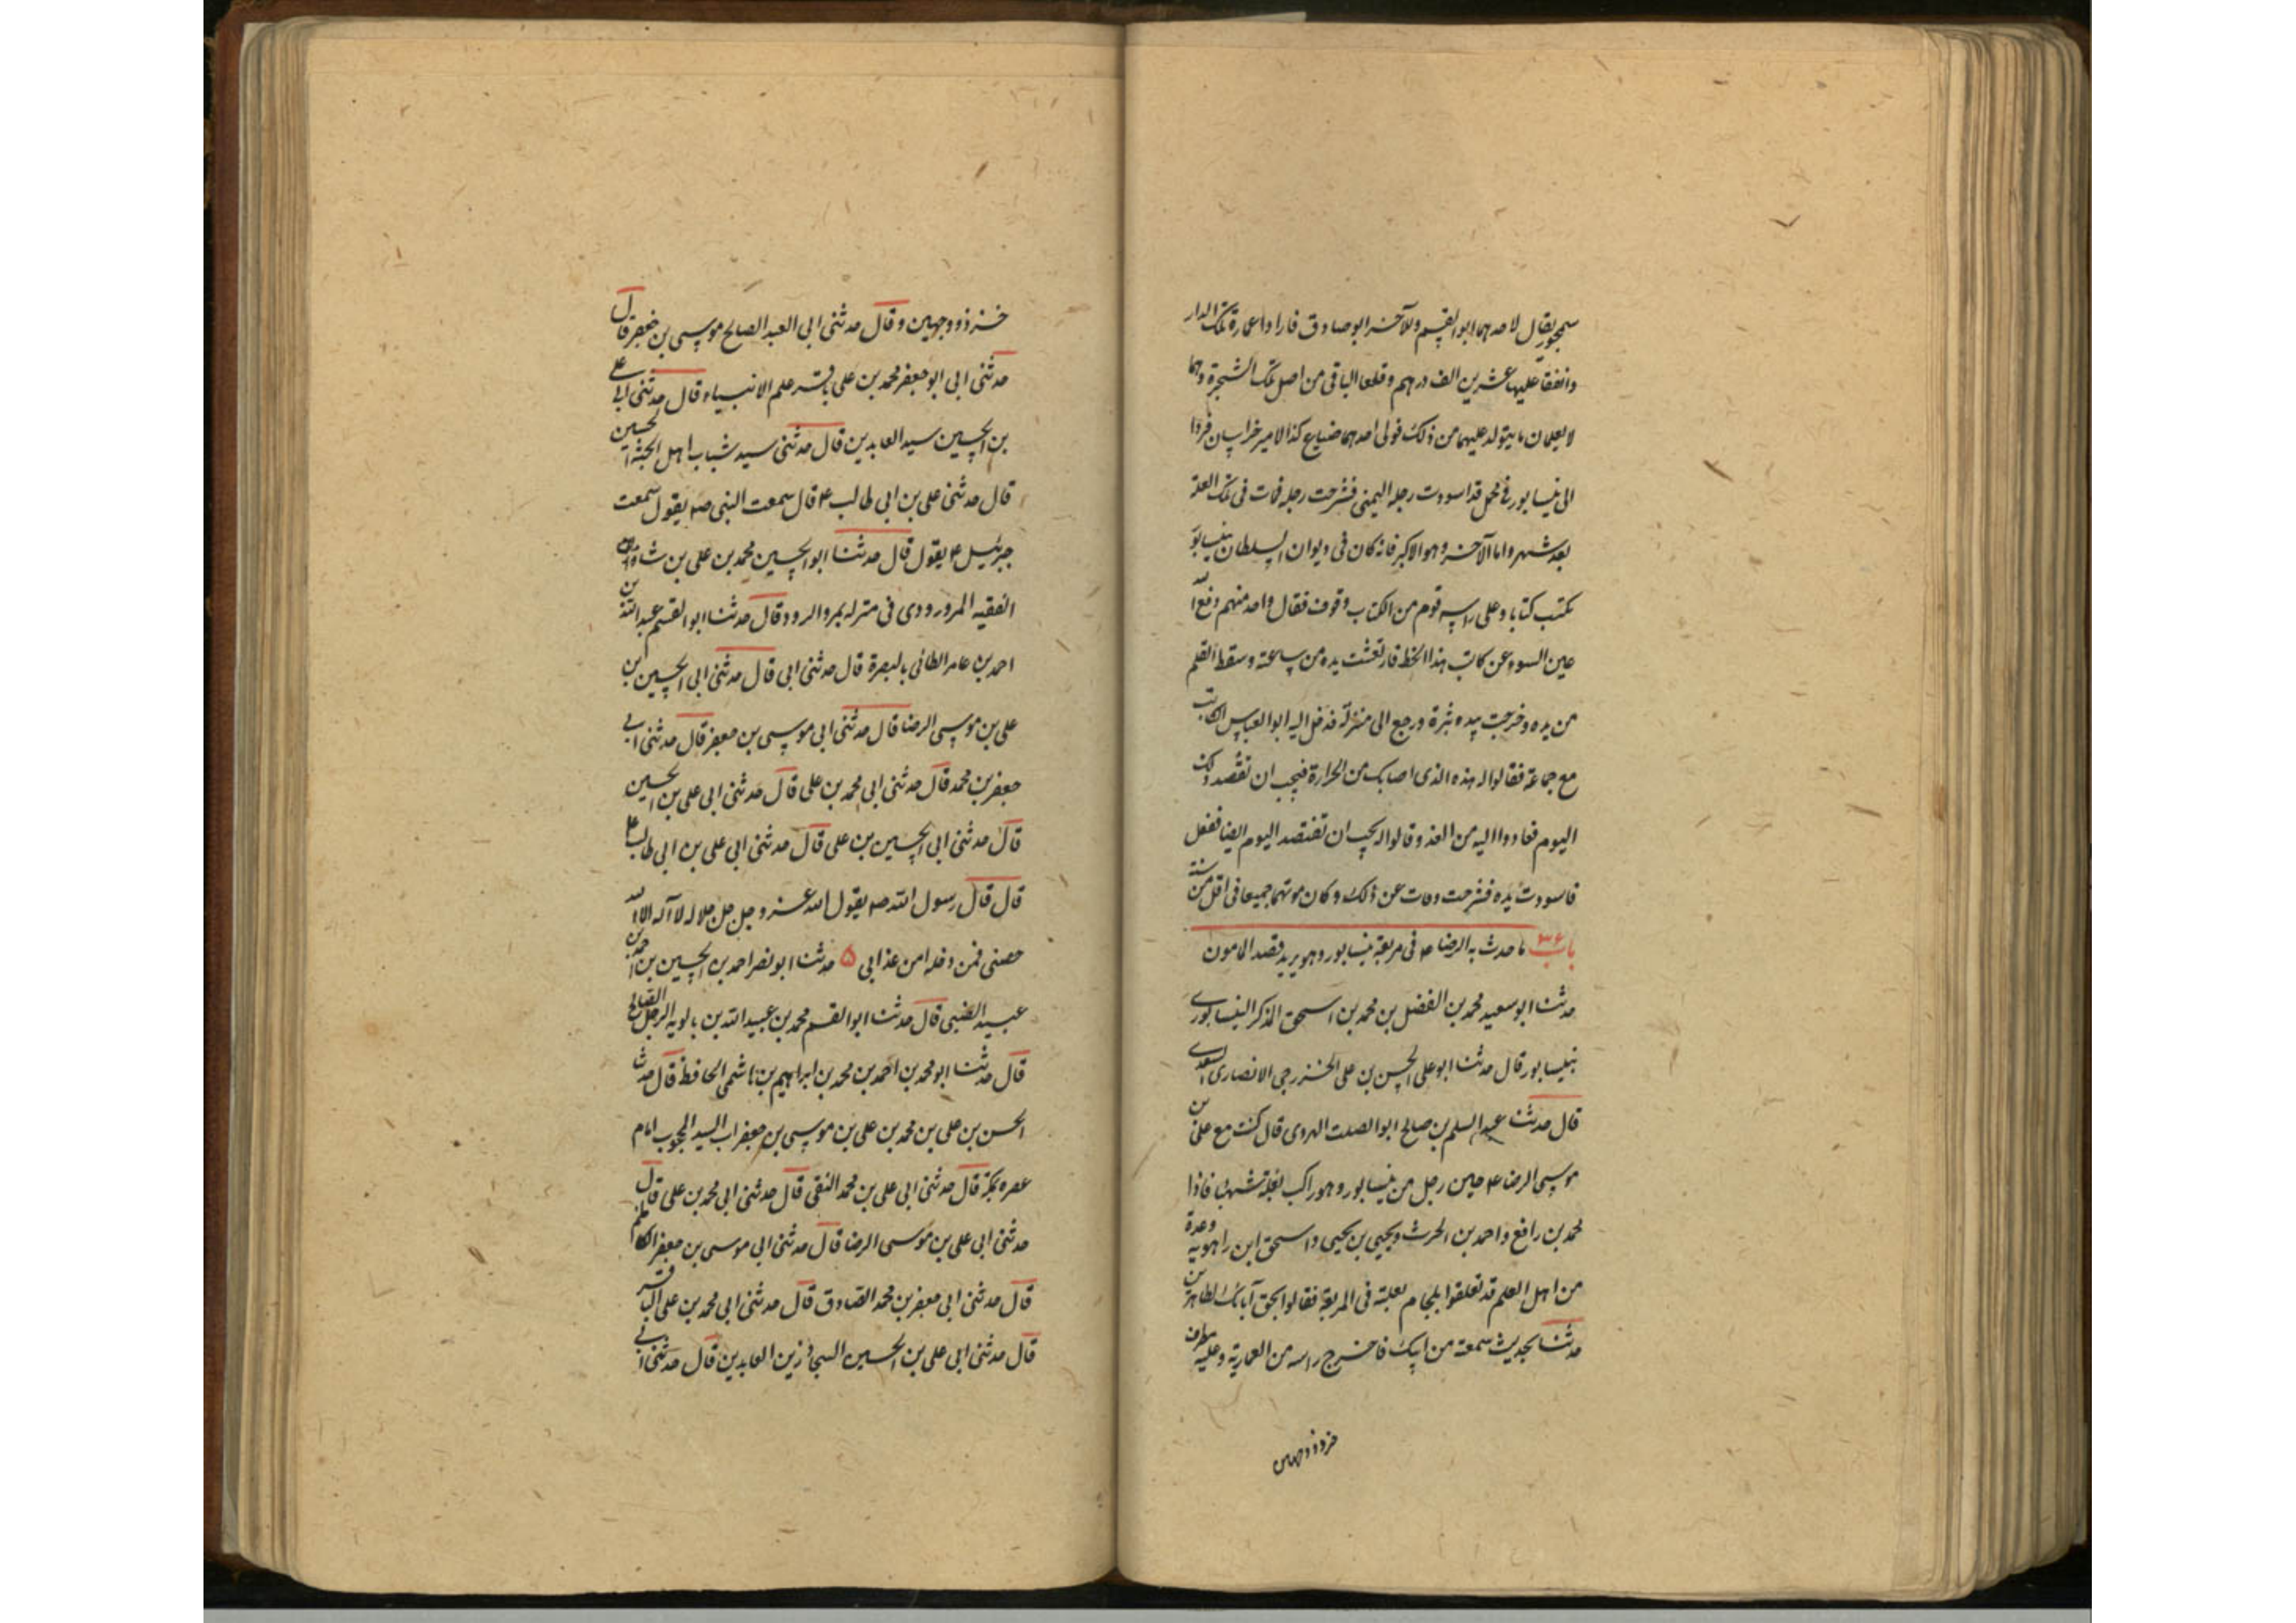 سمجور يقال لاحدهما ابو القسم وللآخر ابو صادق فارادا عمارة تلك الدار
وانفقا عليها عشرين الف درهم وقلعا الباقي من اصل تلك الشجرة وهما
لا يعلمان ما يتولد عليهما من ذلك فولى احدهما ضياع كذا لامير خراسان فردا
الى نيسابور في محمل قد اسودت رجله اليمنى فشرحت رجله فمات في تلك العلة
بعد شهر واما الآخر وهو الاكبر فانه كان في ديوان السلطان بنيسابور
يكتب كتابا وعلى راسه قوم من الكتاب وقوف فقال واحد منهم دفع الله
عين السوء عن كاتب هذا الخط فارتعشت يده من ساعته وسقط القلم
من يده وخرجت بيده بثرة ورجع الى منزله فدخل اليه ابو العباس الكاتب
مع جماعة فقالوا له هذه الذي اصابك من الحرارة فيجب ان تفصد ذلك
اليوم فعادوا اليه من الغد وقالوا له يجب ان تفتصد اليوم ايضا ففعل
فاسودت يده فشرحت ومات عن ذلك وكان موتهما جميعا في اقل من سنة
باب ٣۶ ما حدث به الرضا ع في مربعة نيسابور وهو يريد قصد المامون
حدثنا ابو سعيد محمد بن الفضل بن محمد بن اسحق المذكر النيسابوري
بنيسابور قال حدثنا ابو علي الحسن بن علي الخزرجي الانصاري السعدي
قال حدثنا عبد السلم بن صالح ابو الصلت الهروي قال كنت مع علي بن
موسى الرضا ع حين رحل من نيسابور وهو راكب بغلة شهباء فاذا
محمد بن رافع واحمد بن الحرث ويحيى بن يحيى واسحق ابن راهويه وعدة
من اهل العلم قد تعلقوا بلجام بغلته في المربعة فقالوا بحق آبائك الطاهرين
حدثنا بحديث سمعته من ابيك فاخرج راسه من العمارية وعليه مطرف
خز ذو وجهين
خز ذو وجهين وقال حدثني ابي العبد الصالح موسى بن جعفر قال
حدثني ابي ابو جعفر محمد بن علي باقر علم الانبياء قال حدثني ابي علي
بن الحسين سيد العابدين قال حدثني سيد شباب اهل الجنة الحسين
قال حدثني علي بن ابي طالب ع قال سمعت النبي ص يقول سمعت
جبرئيل ع يقول قال حدثنا ابو الحسين محمد بن علي بن شاه
الفقيه المرورودي في منزله بمرو الرود قال حدثنا ابو القسم عبد الله بن
احمد بن عامر الطائي بالبصرة قال حدثني ابي قال حدثني ابي الحسين بن
علي بن موسى الرضا قال حدثني ابي موسى بن جعفر قال حدثني ابي
جعفر بن محمد قال حدثني ابي محمد بن علي قال حدثني ابي علي بن الحسين
قال حدثني ابي الحسين بن علي قال حدثني ابي علي بن ابي طالب ع
قال قال رسول الله ص يقول الله عز وجل جل جلاله لا اله الا الله
حصني فمن دخله امن عذابي ۵ حدثنا ابو نصر احمد بن الحسين بن احمد بن
عبيد الضبي قال حدثنا ابو القسم محمد بن عبيد الله بن بالويه الرجل الصالح
قال حدثنا ابو محمد بن احمد بن محمد بن ابراهيم بن هاشمي الحافظ قال حدثنا
الحسن بن علي بن محمد بن علي بن موسى بن جعفر اب السيد المحجوب امام
عصره بمكة قال حدثني ابي علي بن محمد النقي قال حدثني ابي محمد بن علي قال
حدثني ابي علي بن موسى الرضا قال حدثني ابي موسى بن جعفر الكاظم
قال حدثني ابي جعفر بن محمد الصادق قال حدثني ابي محمد بن علي الباقر
قال حدثني ابي علي بن الحسين السجاد زين العابدين قال حدثني ابي